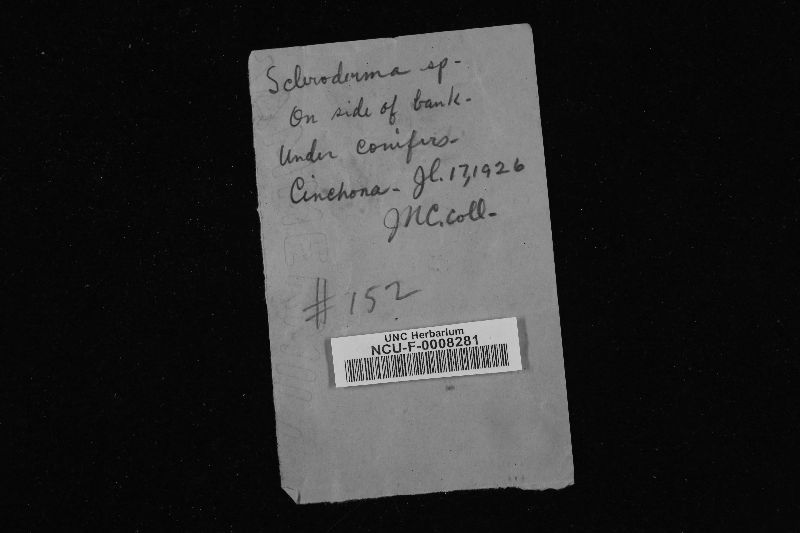 Scleroderma sp-
On side of bank-
Under conifers-
Cinchona- Jl. 17, 1926
JNC. coll-
#152
UNC Herbarium
NCU-F-0008281